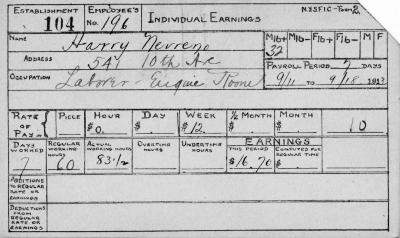 ESTABLISHMENT EMPLOYEE'S INDIVIDUAL EARNINGS N.Y.S.F.I.C.
104 NO. 196
NAME Harry M16+ M16- F16+ F16- M F
32
ADDRESS 547 10th Ave
PAYROLL PERIOD 7 DAYS
OCCUPATION Laborer Engine Room 9/11 TO 9/18 191
RATE OF PAY PIECE HOUR DAY WEEK ½ MONTH MONTH
$0. $. $12. $. $. 10
DAYS WORKED REGULAR WORKING HOURS ACTUAL WORKING HOURS OVERTIME HOURS UNDERTIME HOURS EARNINGS
THIS PERIOD COMPUTED FOR REGULAR TIME
7 60 83½ $16.70 $
ADDITIONS TO REGULAR RATE OR EARNINGS
DEDUCTIONS FROM REGULAR RATE OR EARNINGS